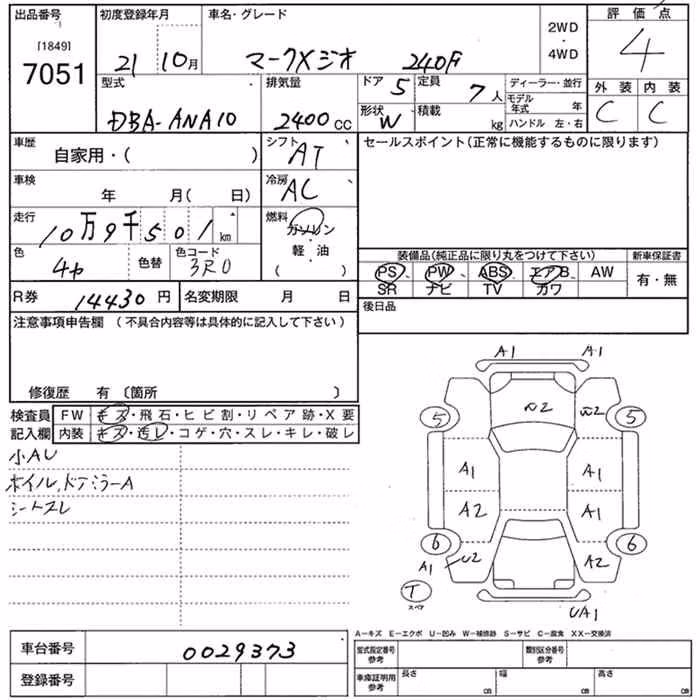 出品番号 初度登録年月 車名・グレード 評価点
[1849]
7051 21 10月 マークXジオ 240F 2WD・4WD 4
型式 排気量 ドア 5 定員 7人 ディーラー・並行 外装 内装
DBA-ANA10 2400cc 形状 W 積載 kg モデル年式 年 C C
ハンドル 左・右
車歴 自家用・( ) シフト AT セールスポイント(正常に機能するものに限ります)
車検 年 月( 日) 冷房 AC
走行 10万9千501km 燃料 ガソリン・軽・油 ( )
装備品(純正品に限り丸をつけて下さい) 新車保証書
色 色替 色コード 3R0 PS PW ABS エアB AW 有・無
SR ナビ TV カワ
R券 14430円 名変期限 月 日 後日品
注意事項申告欄 (不具合内容等は具体的に記入して下さい)
修復歴 有〔箇所 〕
検査員 FW キズ・飛石・ヒビ割・リペア跡・X要
記入欄 内装 キズ・汚レ・コゲ・穴・スレ・キレ・破レ
小AU
ホイル、ドアミラーA
シートスレ
A1 A1
5 5
A1 A1
A2 A1
6 6
A1 U2 A2
T
スペア
UA1
A-キズ E-エクボ U-凹み W-補修跡 S-サビ C-腐食 XX-交換済
車台番号 0029373 型式指定番号 参考 類別区分番号 参考
登録番号 車庫証明用 参考 長さ cm 幅 cm 高さ cm